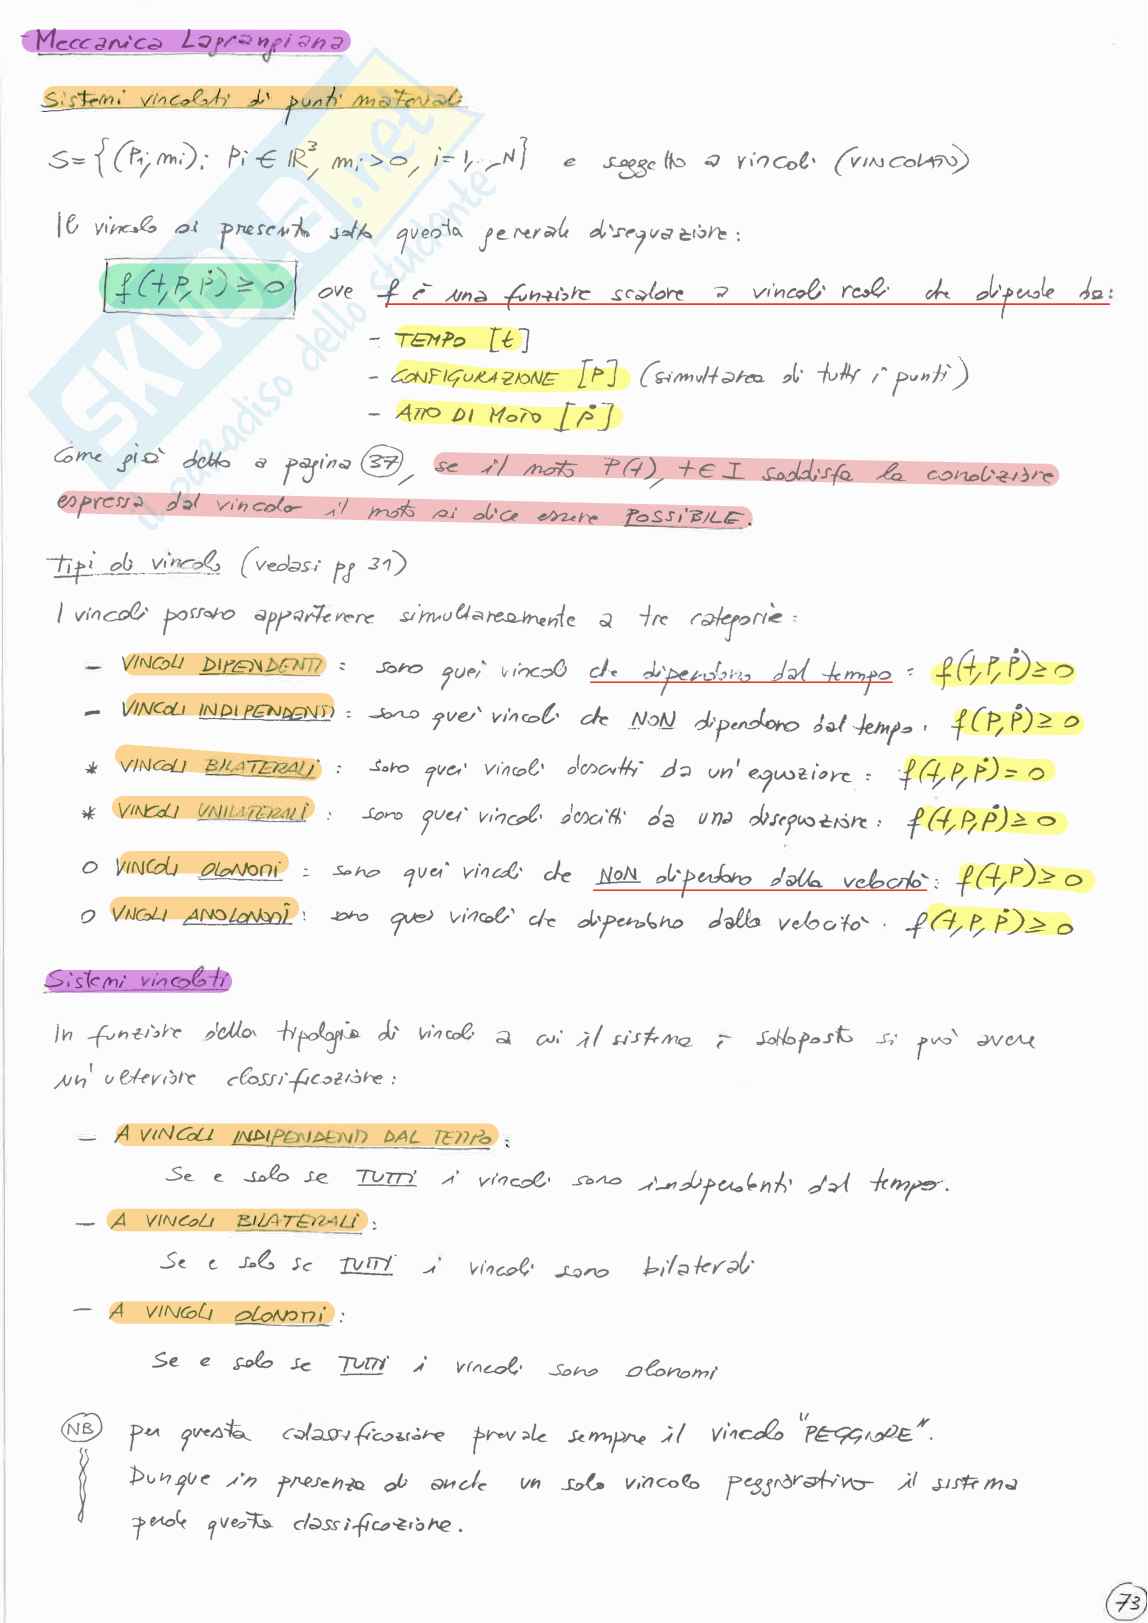 - Meccanica Lagrangiana
Sistemi vincolati di punti materiali
S={(Pi,mi): Pi ∈ ℝ³, mi>0, i=1,..,N} e soggetto a vincoli (VINCOLATO)
Il vincolo si presenta sotto questa generale disequazione:
f(t,P,Ṗ) ≥ 0 ove f è una funzione scalare a vincoli reali che dipende da:
- TEMPO [t]
- CONFIGURAZIONE [P] (simultanea di tutti i punti)
- ATTO DI MOTO [Ṗ]
Come già detto a pagina 37, se il moto P(t), t∈I soddisfa la condizione
espressa dal vincolo il moto si dice essere POSSIBILE.
Tipi di vincolo (vedasi pg 31)
I vincoli possono appartenere simultaneamente a tre categorie:
- VINCOLI DIPENDENTI: sono quei vincoli che dipendono dal tempo: f(t,P,Ṗ) ≥ 0
- VINCOLI INDIPENDENTI: sono quei vincoli che NON dipendono dal tempo. f(P,Ṗ) ≥ 0
* VINCOLI BILATERALI: sono quei vincoli descritti da un'equazione: f(t,P,Ṗ) = 0
* VINCOLI UNILATERALI: sono quei vincoli descritti da una disequazione: f(t,P,Ṗ) ≥ 0
O VINCOLI OLONOMI: sono quei vincoli che NON dipendono dalla velocità: f(t,P) ≥ 0
O VINCOLI ANOLONOMI: sono quei vincoli che dipendono dalla velocità. f(t,P,Ṗ) ≥ 0
Sistemi vincolati
In funzione della tipologia di vincoli a cui il sistema è sottoposto si può avere
un'ulteriore classificazione:
- A VINCOLI INDIPENDENTI DAL TEMPO:
Se e solo se TUTTI i vincoli sono indipendenti dal tempo.
- A VINCOLI BILATERALI:
Se e solo se TUTTI i vincoli sono bilaterali
- A VINCOLI OLONOMI:
Se e solo se TUTTI i vincoli sono olonomi
NB per questa calassificazione prevale sempre il vincolo "PEGGIORE".
Dunque in presenza di anche un solo vincolo peggiorativo il sistema
perde questa classificazione.
73
SKUOLA.net
il paradiso dello studente